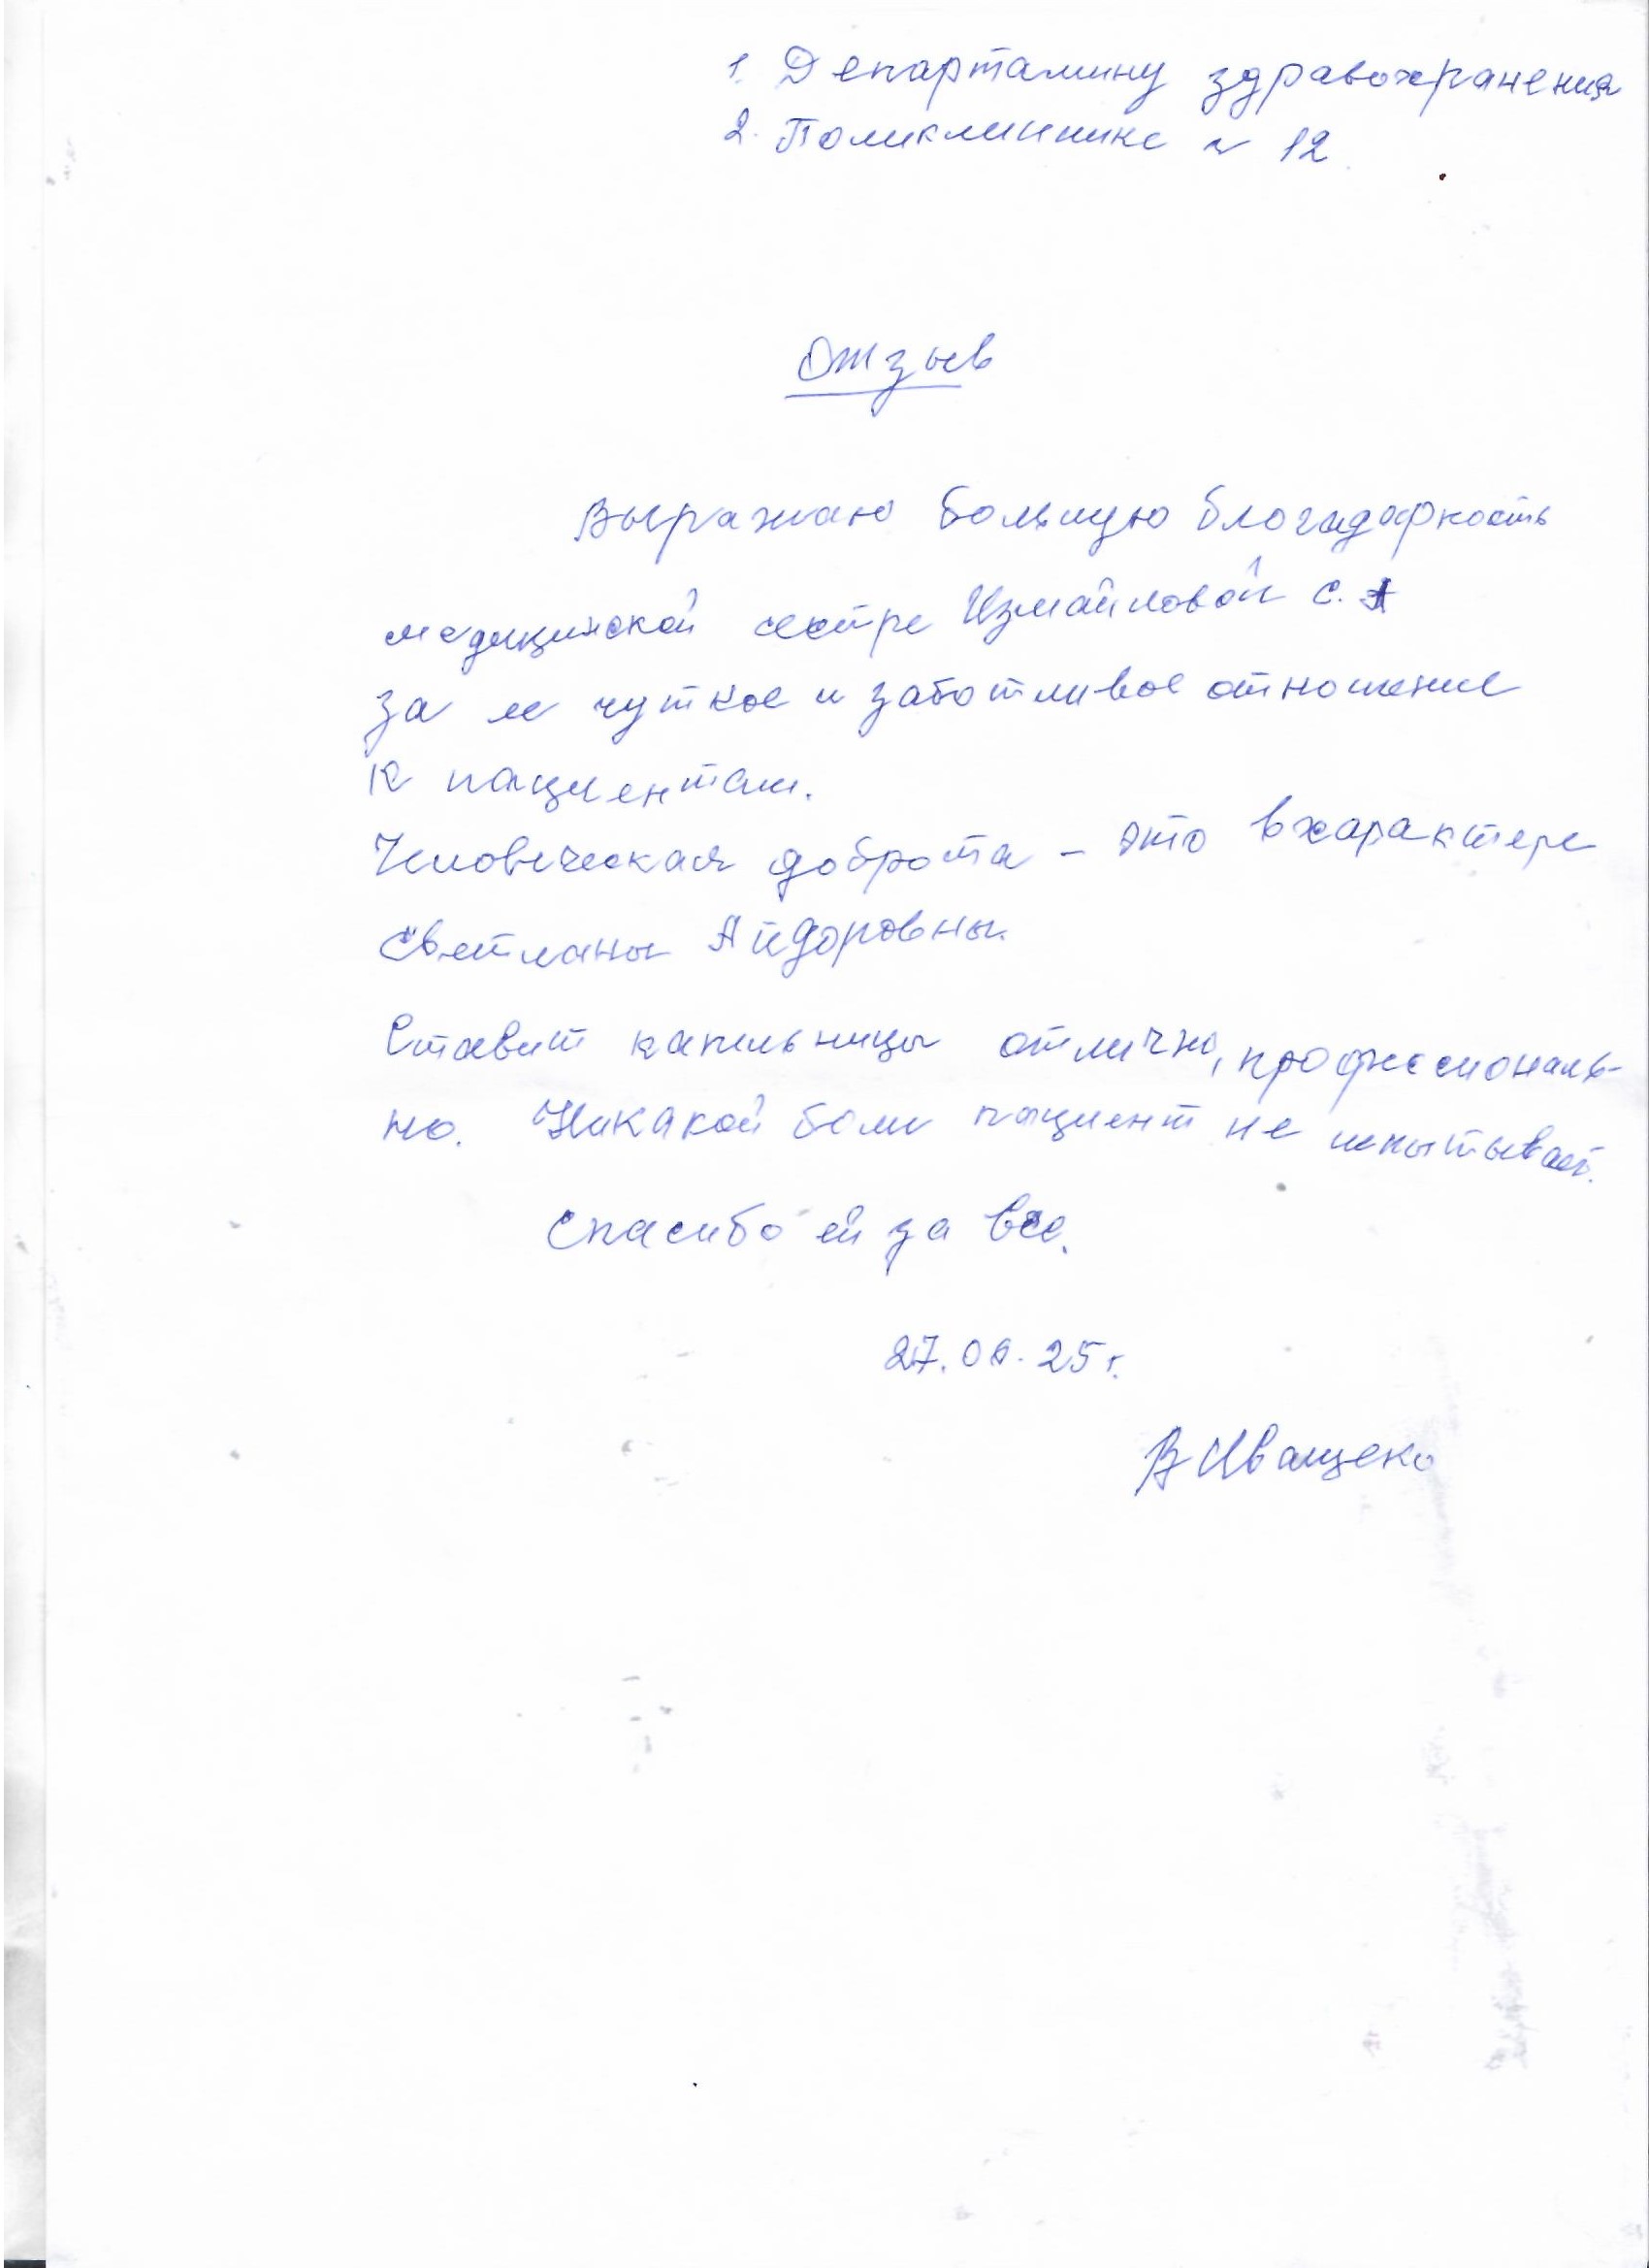 1. Департамину здравохранения
2. Поликлиннике № 12
Отзыв
Выражаю большую благадарность
медицинской сестре Измайловой С. А
за ее чуткое и заботливое отношение
к пациентам.
Человеческая доброта - это в характере
Светланы Айдоровны.
Ставит капельницы отлично, профессиональ-
но. Никакой боли пациент не испытывает.
Спасибо ей за все.
27.06.25 г.
В Иващеко